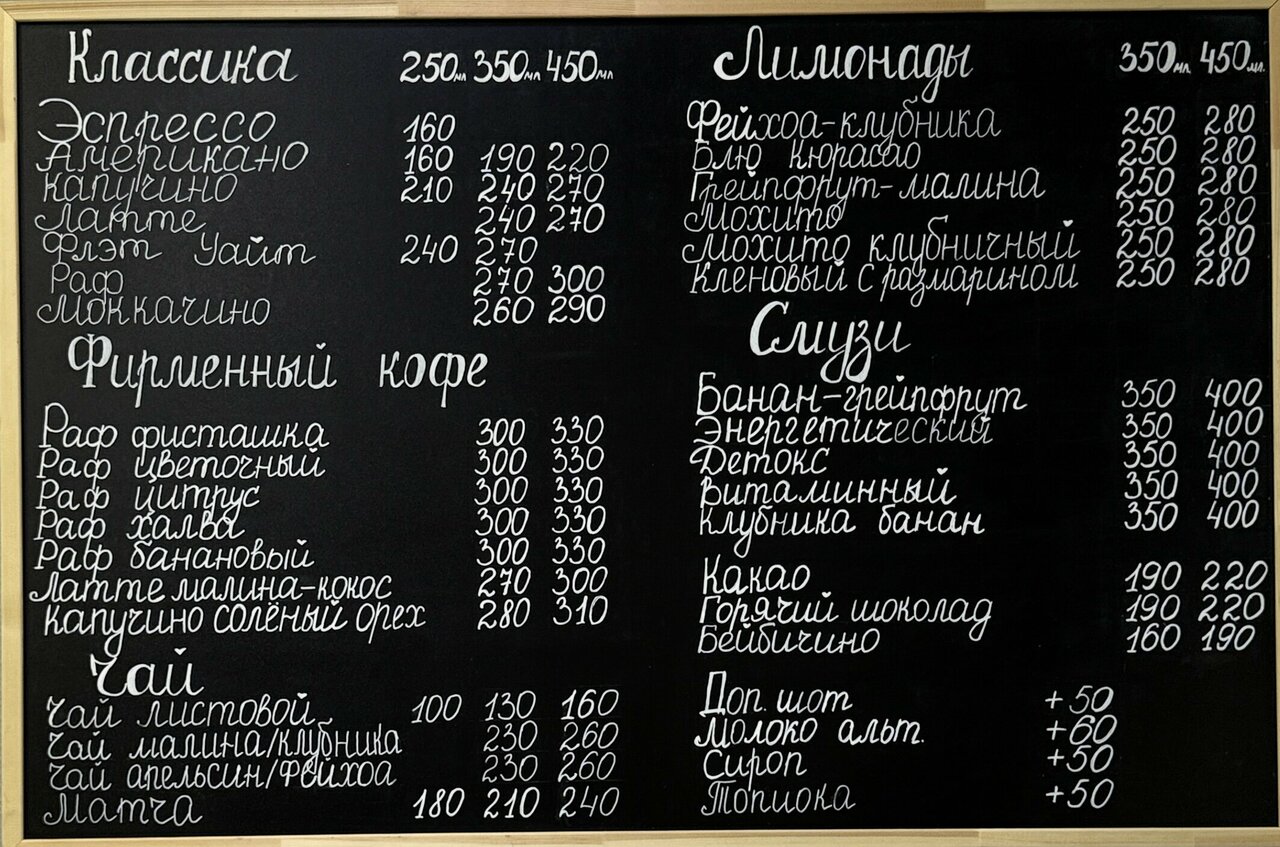 Классика 250мл 350мл 450мл
Эспрессо 160
Американо 160 190 220
Капучино 210 240 270
Латте 240 270
Флэт Уайт 240 270
Раф 270 300
Моккачино 260 290
Фирменный кофе
Раф фисташка 300 330
Раф цветочный 300 330
Раф цитрус 300 330
Раф халва 300 330
Раф банановый 300 330
Латте малина-кокос 270 300
Капучино солёный орех 280 310
Чай
Чай листовой 100 130 160
Чай малина/клубника 230 260
Чай апельсин/Фейхоа 230 260
Матча 180 210 240
Лимонады 350мл. 450мл.
Фейхоа-клубника 250 280
Блю Кюрасао 250 280
Грейпфрут-малина 250 280
Мохито 250 280
Мохито клубничный 250 280
Кленовый с размарином 250 280
Смузи
Банан-грейпфрут 350 400
Энергетический 350 400
Детокс 350 400
Витаминный 350 400
Клубника банан 350 400
Какао 190 220
Горячий шоколад 190 220
Бейбичино 160 190
Доп. шот +50
Молоко альт. +60
Сироп +50
Топиока +50